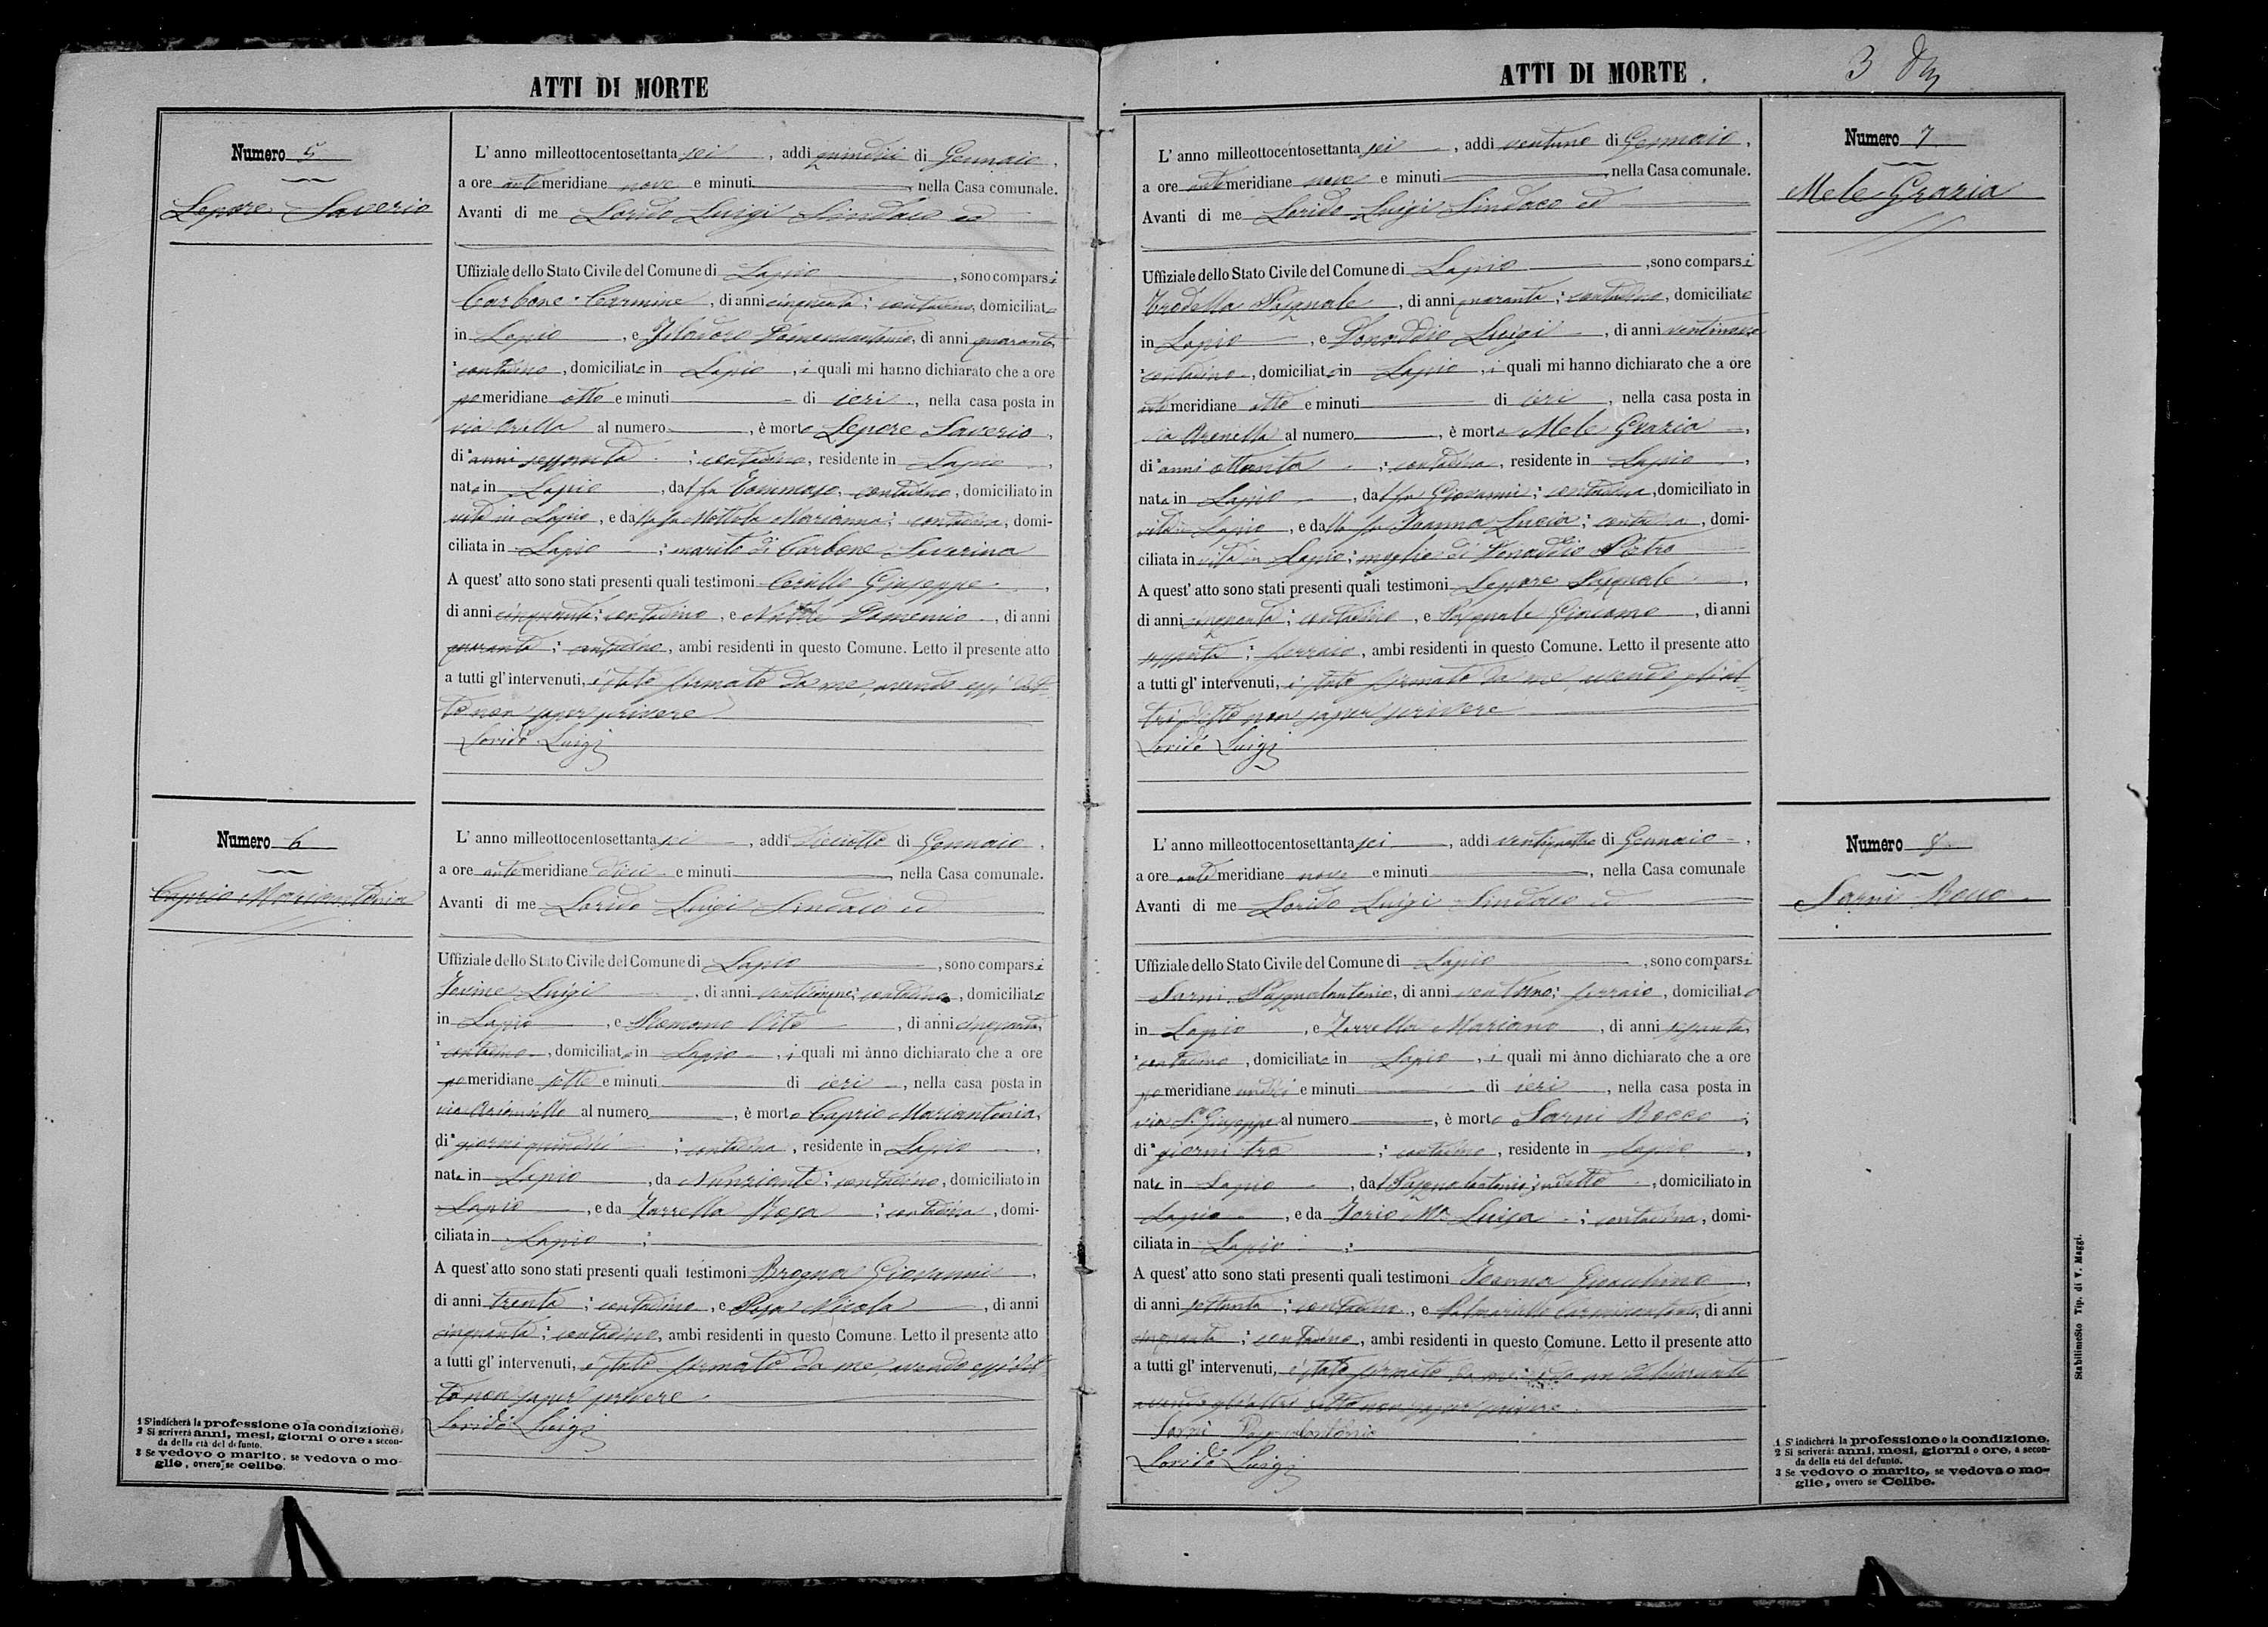 ATTI DI MORTE
Numero 5
Lepore Saverio
L' anno milleottocentosettanta sei, addi quindici di Gennaio,
a ore antemeridiane nove e minuti, nella Casa comunale.
Avanti di me Lorido Luigi Sindaco ed
Uffiziale dello Stato Civile del Comune di Lapio, sono comparsi
Carbone Carmine, di anni cinquanta; contadino, domiciliato
in Lapio, e, di anni quaranta,
contadino, domiciliato in Lapio, i quali mi hanno dichiarato che a ore
pomeridiane otto e minuti di ieri, nella casa posta in
via al numero, è morto Lepore Saverio,
di anni sessanta; contadino, residente in Lapio,
nato in Lapio, dal fu Tommaso, contadino, domiciliato in
vita in Lapio, e dalla fu Mottola Marianna; contadina, domi-
ciliata in Lapio; marito di Carbone Severina
A quest' atto sono stati presenti quali testimoni Ciriello Giuseppe,
di anni cinquanta; contadino, e Domenico, di anni
quaranta; contadino, ambi residenti in questo Comune. Letto il presente atto
a tutti gl' intervenuti, è stato firmato da me, avendo essi det-
to non saper scrivere
Lorido Luigi
Numero 6
Caprio Mariantonia
L' anno milleottocentosettanta sei, addi diciotto di Gennaio,
a ore antemeridiane dieci e minuti, nella Casa comunale.
Avanti di me Lorido Luigi Sindaco ed
Uffiziale dello Stato Civile del Comune di Lapio, sono comparsi
Iovine Luigi, di anni venticinque; contadino, domiciliato
in Lapio, e Romano Vito, di anni cinquanta,
contadino, domiciliato in Lapio, i quali mi ànno dichiarato che a ore
pomeridiane sette e minuti di ieri, nella casa posta in
via al numero, è morto Caprio Mariantonia,
di giorni quindici; contadina, residente in Lapio,
nata in Lapio, da Nunziante; contadino, domiciliato in
Lapio, e da Zarrella Rosa; contadina, domi-
ciliata in Lapio;
A quest' atto sono stati presenti quali testimoni Brogna Giovanni,
di anni trenta; contadino, e Nicola, di anni
cinquanta; contadino, ambi residenti in questo Comune. Letto il presente atto
a tutti gl' intervenuti, è stato firmato da me, avendo essi det-
to non saper scrivere
Lorido Luigi
1 S' indicherà la professione o la condizione.
2 Si scriverà anni, mesi, giorni o ore a secon-
da della età del defunto.
3 Se vedovo o marito, se vedova o mo-
glie, ovvero se celibe.
ATTI DI MORTE
3
Numero 7
Mele Grazia
L' anno milleottocentosettanta sei, addi ventuno di Gennaio,
a ore antemeridiane nove e minuti, nella Casa comunale.
Avanti di me Lorido Luigi Sindaco ed
Uffiziale dello Stato Civile del Comune di Lapio, sono comparsi
Trodella Pasquale, di anni quaranta; contadino, domiciliato
in Lapio, e Venaddio Luigi, di anni ventinove
contadino, domiciliato in Lapio, i quali mi hanno dichiarato che a ore
antemeridiane otto e minuti di ieri, nella casa posta in
via Arenella al numero, è morta Mele Grazia,
di anni ottanta; contadina, residente in Lapio,
nata in Lapio, dal fu Giovanni; contadino, domiciliato in
vita in Lapio, e dalla fu Ioanna Lucia; contadina, domi-
ciliata in vita in Lapio; moglie di Venaddio Pietro
A quest' atto sono stati presenti quali testimoni Lepore Pasquale,
di anni cinquanta; contadino, e Pasquale Giacomo, di anni
sessanta; ferraio, ambi residenti in questo Comune. Letto il presente atto
a tutti gl' intervenuti, è stato firmato da me, avendo gli al-
tri detto non saper scrivere
Lorido Luigi
Numero 8
Sarni Rocco
L' anno milleottocentosettanta sei, addi ventiquattro di Gennaio,
a ore antemeridiane nove e minuti, nella Casa comunale
Avanti di me Lorido Luigi Sindaco ed
Uffiziale dello Stato Civile del Comune di Lapio, sono comparsi
Sarni Pasqualantonio, di anni ventuno; ferraio, domiciliato
in Lapio, e Zarrella Mariano, di anni sessanta,
contadino, domiciliato in Lapio, i quali mi ànno dichiarato che a ore
pomeridiane undici e minuti di ieri, nella casa posta in
via S. Giuseppe al numero, è morto Sarni Rocco,
di giorni tre; contadino, residente in Lapio,
nato in Lapio, dal Pasqualantonio sudetto, domiciliato in
Lapio, e da Iorio Ma Luisa; contadina, domi-
ciliata in Lapio;
A quest' atto sono stati presenti quali testimoni Ioanna Gioacchino,
di anni settanta; contadino, e Palmariello Carminantonio, di anni
cinquanta; contadino, ambi residenti in questo Comune. Letto il presente atto
a tutti gl' intervenuti, è stato firmato da me e da un dichiarante
avendo gli altri detto non saper scrivere.
Sarni Pasqualantonio
Lorido Luigi
1 S' indicherà la professione o la condizione.
2 Si scriverà: anni, mesi, giorni o ore, a secon-
da della età del defunto.
3 Se vedovo o marito, se vedova o mo-
glie, ovvero se Celibe.
Stabilimento Tip. di V. Maggi.